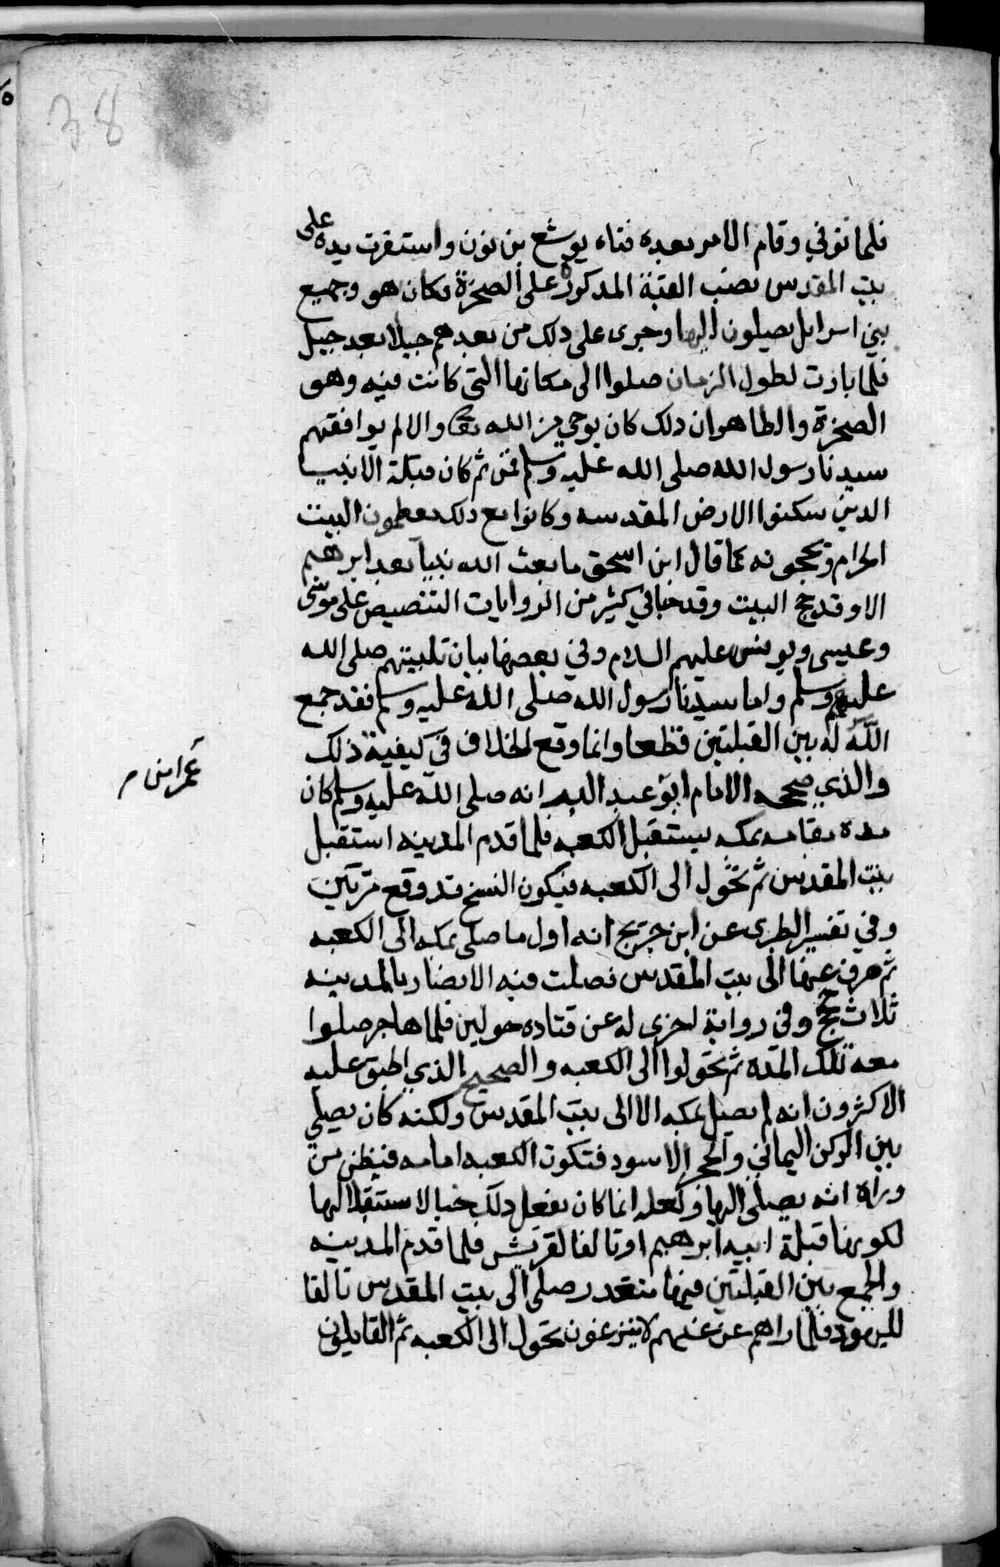 38
فلما توفي وقام الامر بعده فتاه يوشع بن نون واستقرت يده على
بيت المقدس نصب القبة المذكورة على الصخرة فكان هو وجميع
بني اسرايل يصلون اليها وجرى على ذلك من بعدهم جيلا بعد جيل
فلما بادت لطول الزمان صلوا الى مكانها التي كانت فيه وهو
الصخرة والظاهر ان ذلك كان بوحي من الله تع والا لم يوافقهم
سيدنا رسول الله صلى الله عليه وسلم فمن ثم كان قبلة الانبيا
الذين سكنوا الارض المقدسه وكانوا مع ذلك يعظمون البيت
الحرام ويحجونه كما قال ابن اسحق ما بعث الله نبيا بعد ابرهيم
الا وقد حج البيت وقد جا في كثير من الروايات التنصيص على موسى
وعيسى ويونس عليهم السلام وفي بعضها بيان تلبيتهم صلى الله
عليهم وسلم واما سيدنا رسول الله صلى الله عليه وسلم فقد جمع
الله له بين القبلتين قطعا وانما وقع الخلاف في كيفية ذلك
والذي صححه الامام ابو عبد البر انه صلى الله عليه وسلم كان
مدة مقامه بمكه يستقبل الكعبه فلما قدم المدينه استقبل
بيت المقدس ثم تحول الى الكعبه فيكون النسخ قد وقع مرتين
وفي تفسير الطبري عن ابن جريج انه اول ما صلى بمكه الى الكعبه
ثم صرف عنها الى بيت المقدس فصلت فيه الانصار بالمدينه
ثلاث حجج وفي رواية اخرى له عن قتاده حولين فلما هاجر صلوا
معه تلك المدة ثم تحولوا الى الكعبه والصحيح الذي اطبق عليه
الاكثرون انه لم يصل بمكه الا الى بيت المقدس ولكنه كان يصلي
بين الركن اليماني والحجر الاسود فتكون الكعبه امامه فيظن من
وراه انه يصلي اليها ولعله انما كان يفعل ذلك حبا لاستقبالها
لكونها قبلة ابيه ابرهيم او تالفا لقريش فلما قدم المدينه
والجمع بين القبلتين فيها متعذر صلى الى بيت المقدس تالفا
لليهود فلما راهم عن غيهم لا ينزعون تحول الى الكعبه ثم القايلون